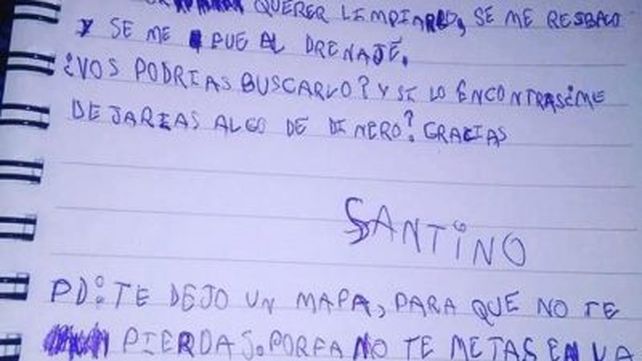 QUERER LIMPIARLO, SE ME RESBALO
Y SE ME FUE AL DRENAJE.
¿VOS PODRIAS BUSCARLO? Y SI LO ENCONTRAS ¿ME
DEJARIAS ALGO DE DINERO? GRACIAS
SANTINO
PD: TE DEJO UN MAPA, PARA QUE NO TE
PIERDAS. PORFA NO TE METAS EN